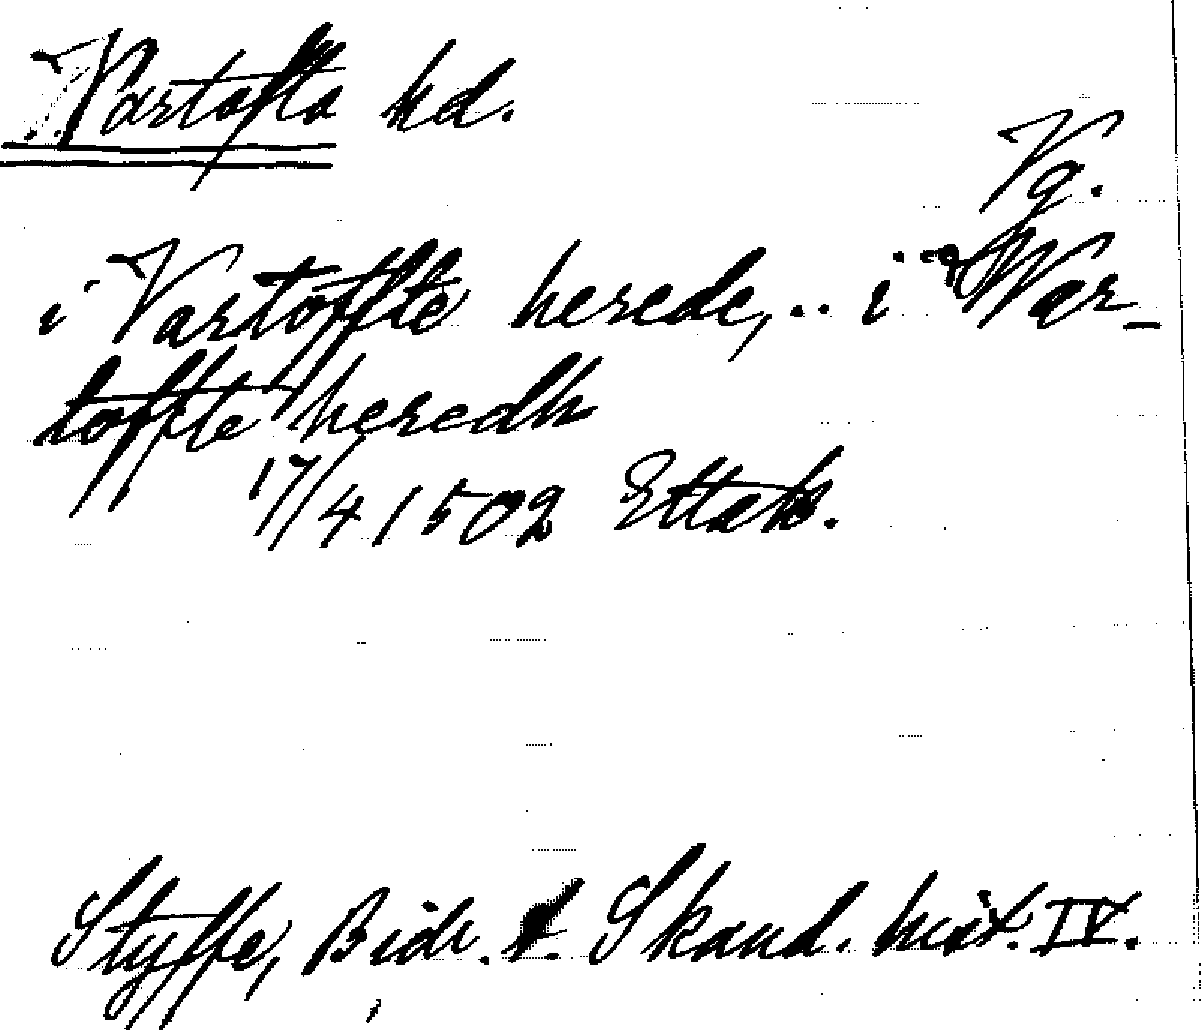 Vartofta hd.
Vg.
i Vartoffte herede, .. i War-
toffte heredh
17/4 1502 Ettak.
Styffe, Bidr. t. Skand. hist. IV.